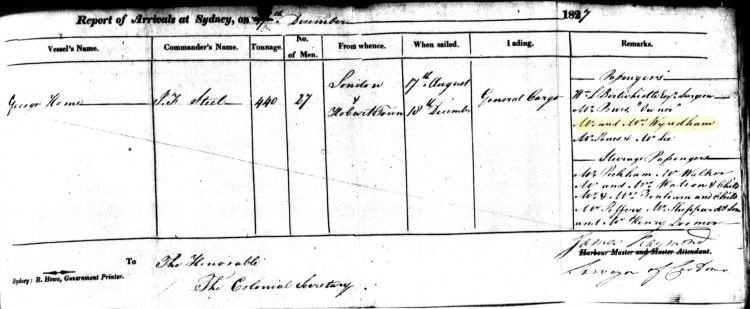 Report of Arrivals at Sydney, on December 1827
Vessel's Name. Commander's Name. Tonnage. No. of Men. From whence. When sailed. Lading. Remarks.
George Home J. K. Steel 440 27 London & Hobart Town 17th August 18th December General Cargo
Passengers
Wm. S. Esqr. Surgeon
Mr.
Mr. and Mrs. Wyndham
Mr. Jones & Mr.
Steerage Passengers
Mr. Peckham, W. Walker
Mr. and Mrs. Watson & Child
Mr. & Mrs. and Child
Mr. Mr. Sheppard & Son
and Mr. Henry Dormer
James Raymond
Harbour Master and Master Attendant.
Surveyor of Customs
To The Honorable
The Colonial Secretary
Sydney: R. Howe, Government Printer.